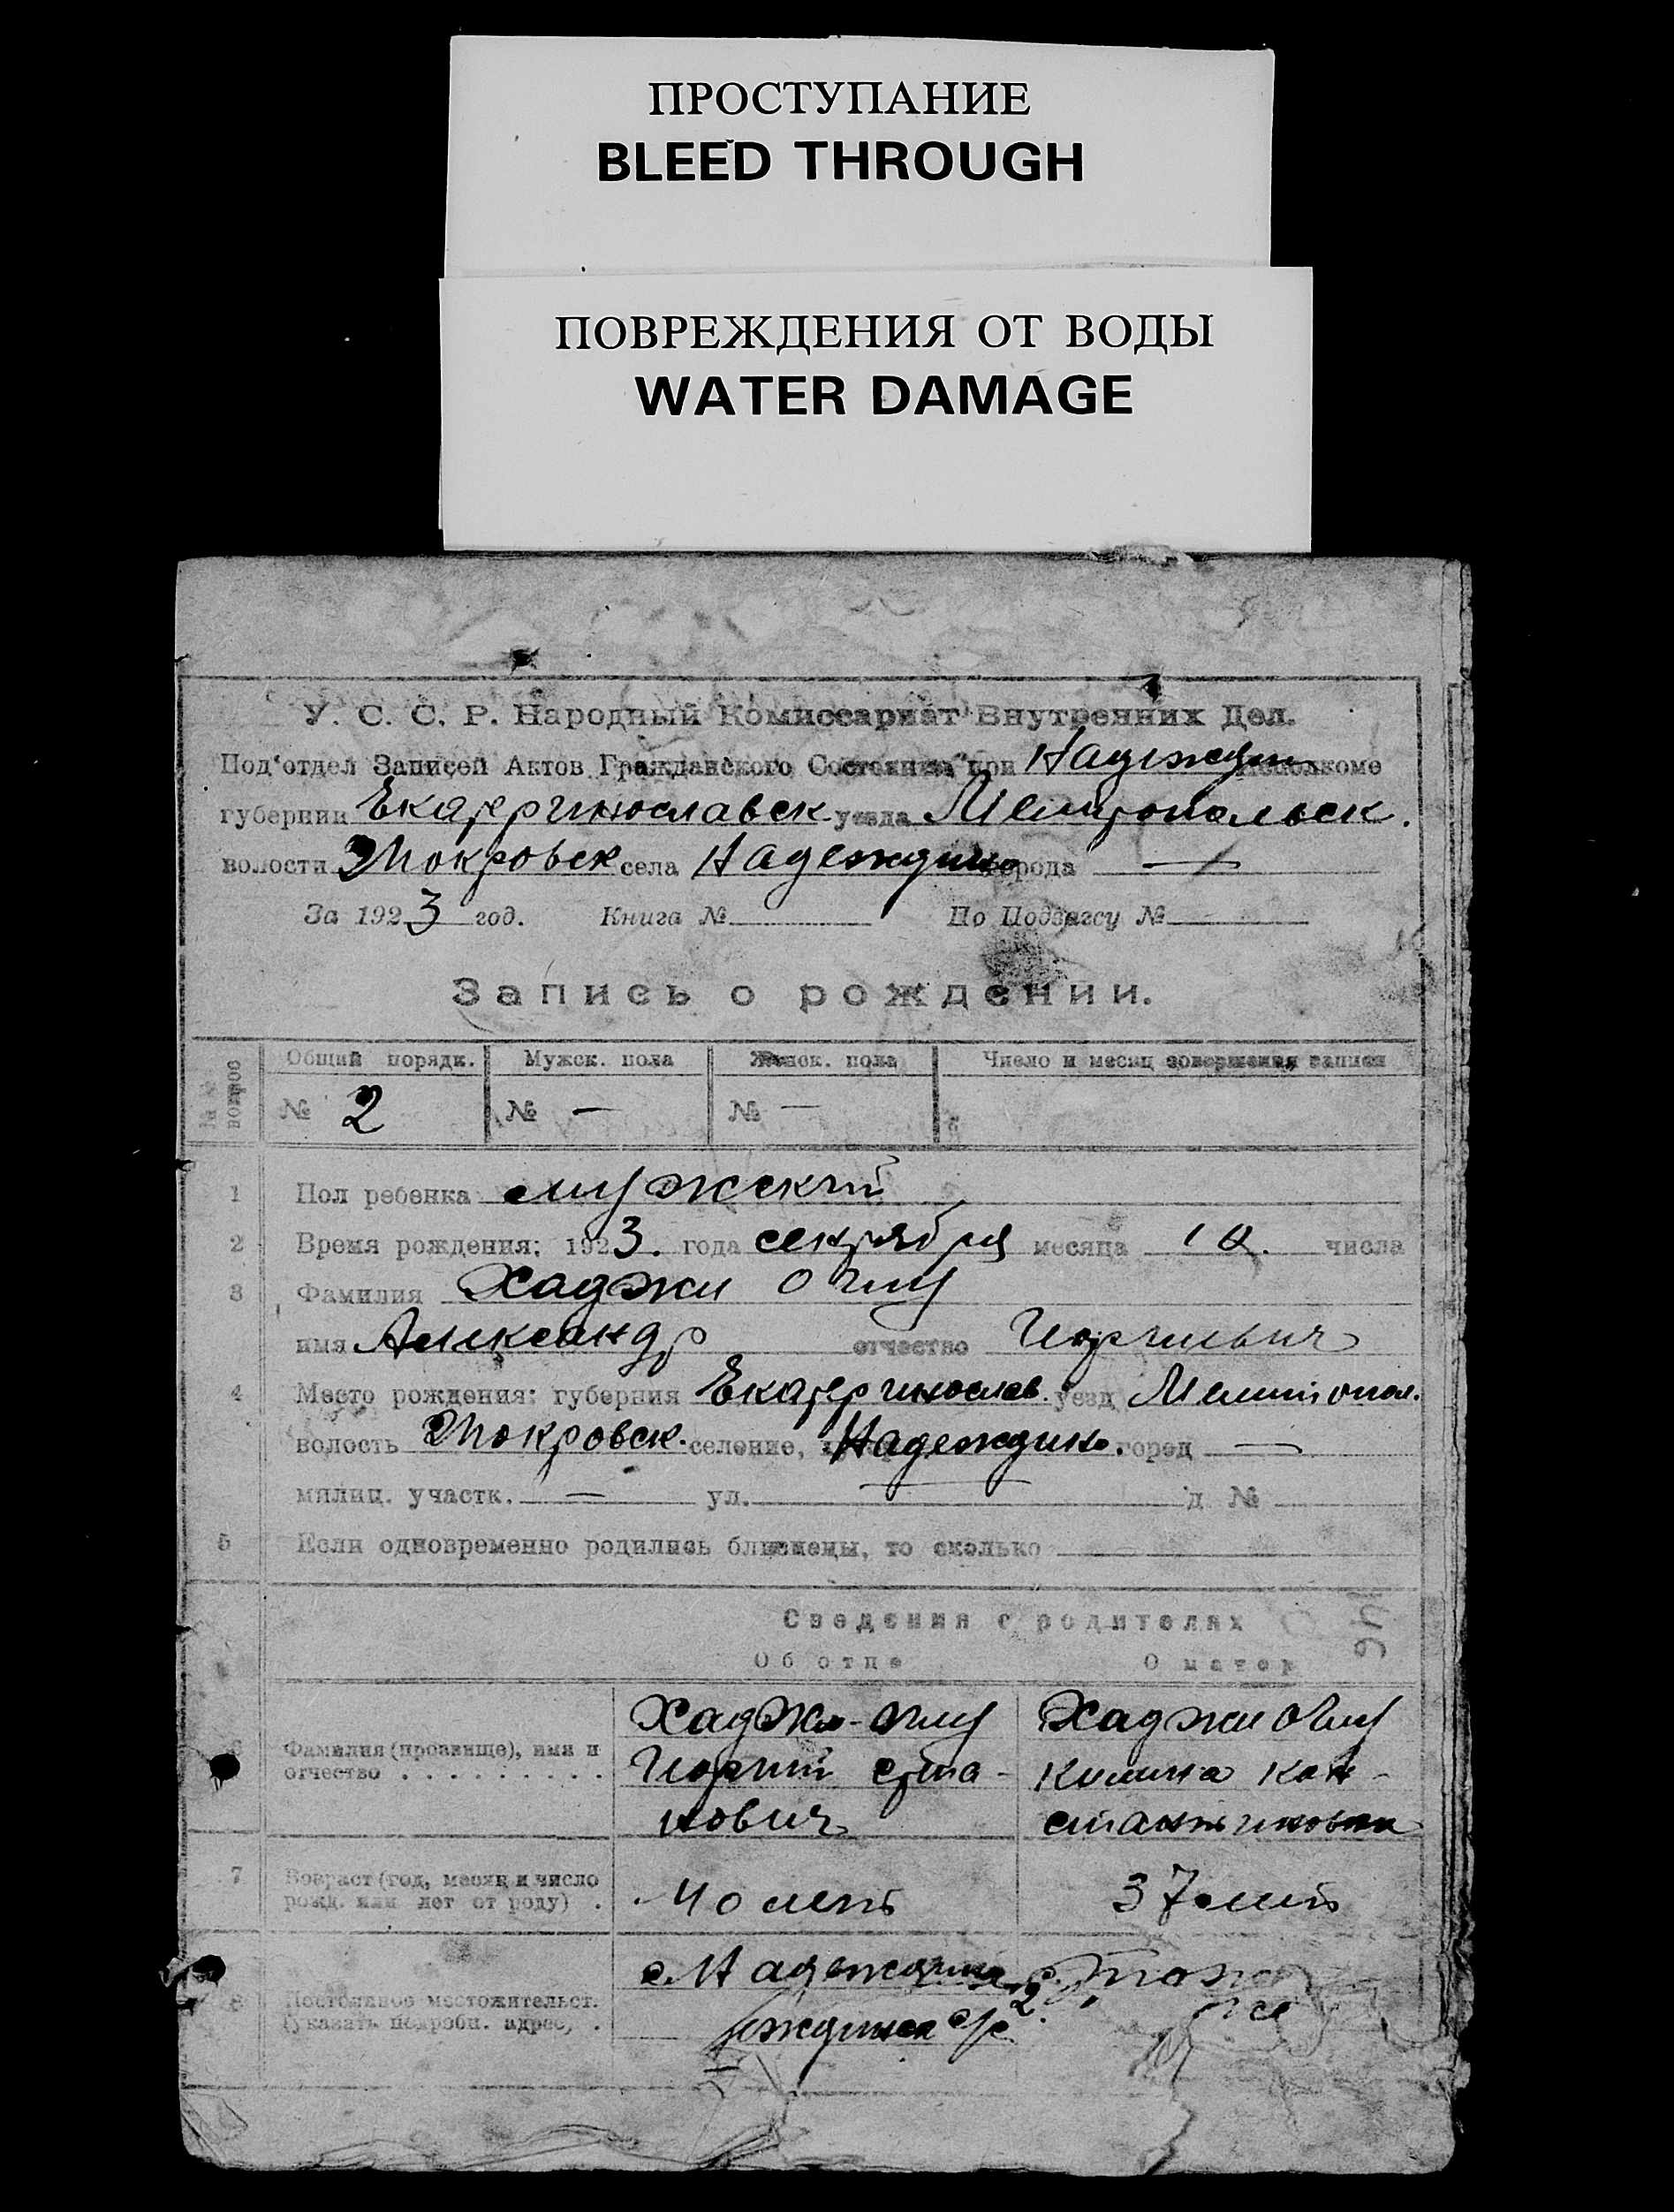 ПРОСТУПАНИЕ
BLEED THROUGH
ПОВРЕЖДЕНИЯ ОТ ВОДЫ
WATER DAMAGE
У. С. С. Р. Народный Комиссариат Внутренних Дел.
Под'отдел Записей Актов Гражданского Состояния при Надеждин
губернии Екатеринославск уезда Мелитопольск.
волости Покровск села Надеждино города —
За 1923 год. Книга № По Подзагсу №
Запись о рождении.
Общий порядк. Мужск. пола Женск. пола Число и месяц совершения записи
№ 2 № — № —
1 Пол ребенка мужский
2 Время рождения: 1923. года сентября месяца числа
3 Фамилия Хаджи Оглу
имя Александр отчество
4 Место рождения: губерния Екатеринослав. уезд Мелитопол.
волость Покровск. селение, Надеждино. город —
милиц. участк. — ул. — д №
5 Если одновременно родились близнецы, то сколько
Сведения о родителях
Об отце О матер
6 Фамилия (прозвище), имя и отчество Хаджи-Оглу Хаджи Оглу
Кон-
нович стантиновна
7 Возраст (год, месяц и число
рожд. или лет от роду) . 40 лет 37 лет
8 Постоянное местожительст. с. Надеждино тоже
(указать подробн. адрес,